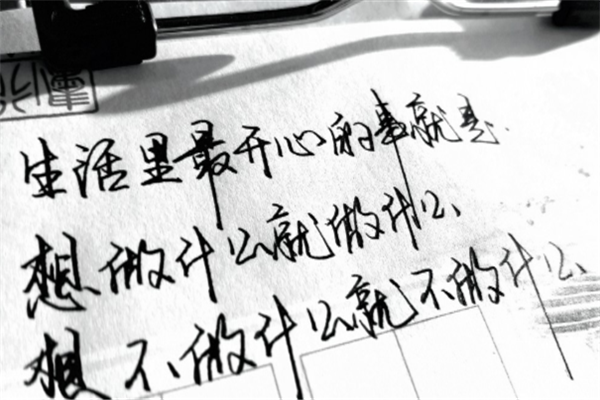 生活里最开心的事就是
想做什么就做什么
想不做什么就不做什么